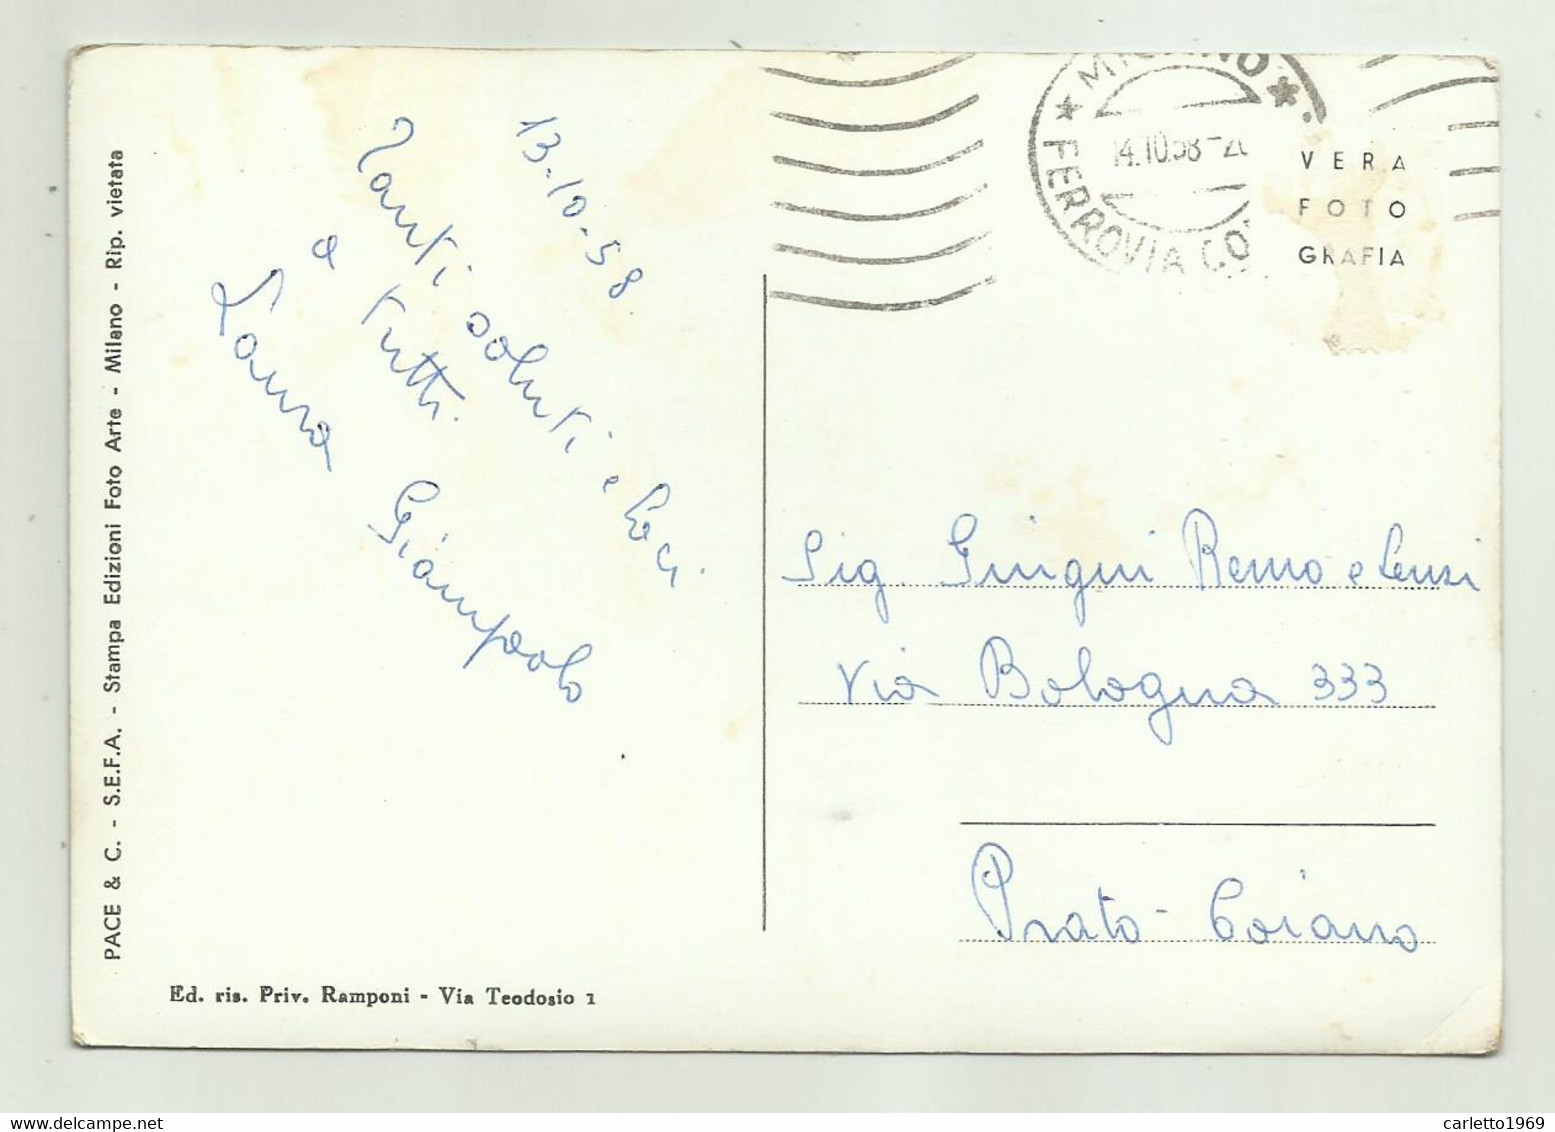 PACE & C. - S.E.F.A. - Stampa Edizioni Foto Arte - Milano - Rip. vietata
13-10-58
Tanti saluti e baci
a tutti.
Laura Giampaolo
Ed. ris. Priv. Ramponi - Via Teodosio 1
MILANO
14.10.58-20
FERROVIA CO
VERA
FOTO
GRAFIA
Sig. Giugni Remo e
Via Bologna 333
Prato - Coiano
carletto1969